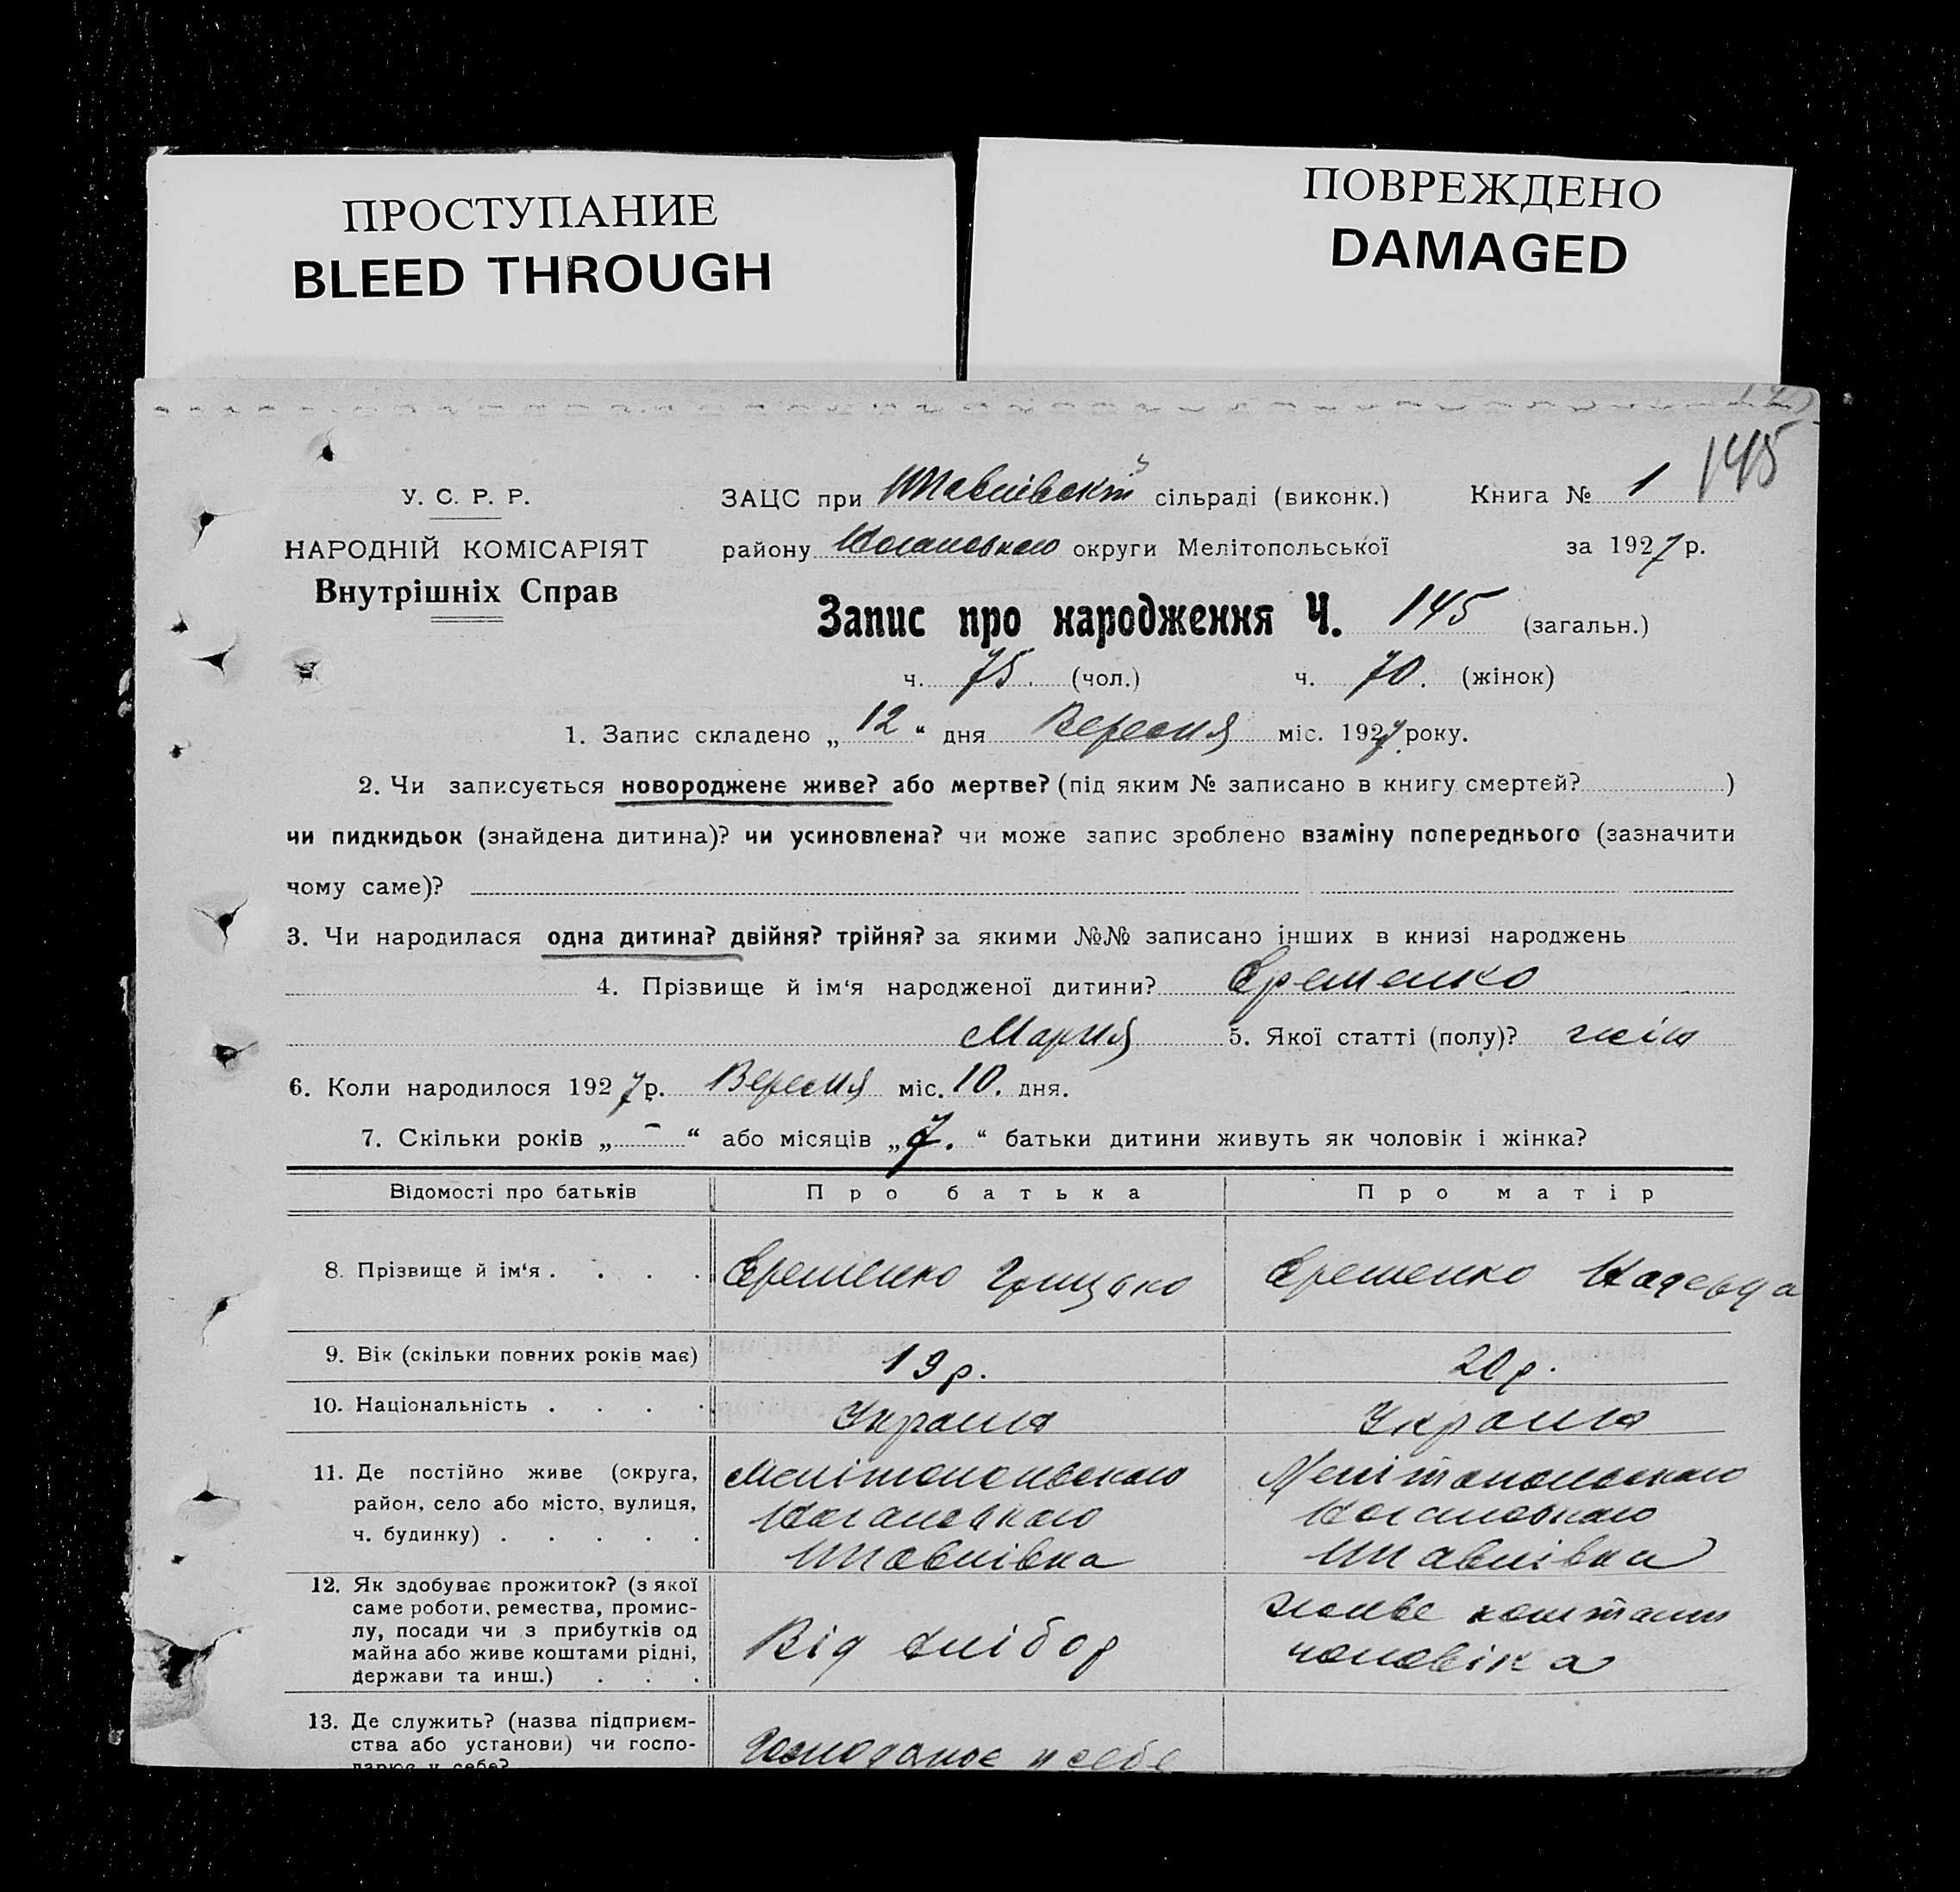 ПРОСТУПАНИЕ
BLEED THROUGH
ПОВРЕЖДЕНО
DAMAGED
145
У. С. Р. Р.
НАРОДНІЙ КОМІСАРІЯТ
Внутрішніх Справ
ЗАЦС при сільраді (виконк.) Книга № 1
району Ногайського округи Мелітопольської за 1927 р.
Запис про народження Ч. 145 (загальн.)
ч. 75. (чол.) ч. 70. (жінок)
1. Запис складено „ 12 “ дня Вересня міс. 1927 року.
2. Чи записується новороджене живе? або мертве? (під яким № записано в книгу смертей? )
чи пидкидьок (знайдена дитина)? чи усиновлена? чи може запис зроблено взаміну попереднього (зазначити
чому саме)?
3. Чи народилася одна дитина? двійня? трійня? за якими №№ записано інших в книзі народжень
4. Прізвище й ім‘я народженої дитини? Єременко
Мария 5. Якої статті (полу)? жіно
6. Коли народилося 1927 р. Вересня міс. 10. дня.
7. Скільки років „ - “ або місяців „ 7. “ батьки дитини живуть як чоловік і жінка?
Відомості про батьків Про батька Про матір
8. Прізвище й ім‘я . . . . Єременко Грицько Єременко
9. Вік (скільки повних років має) 19 р. 20 р.
10. Національність . . . . Україна Україна
11. Де постійно живе (округа, Мелітопольського Мелітопольського
район, село або місто, вулиця, Ногайського Ногайського
ч. будинку) . . . . .
12. Як здобуває прожиток? (з якої
саме роботи, ремества, промис-
лу, посади чи з прибутків од
майна або живе коштами рідні,
держави та инш.) . . .
Від хлібор
живе коштами
чоловіка
13. Де служить? (назва підприєм-
ства або установи) чи госпо-
дарює у себе?
Господарює у себе